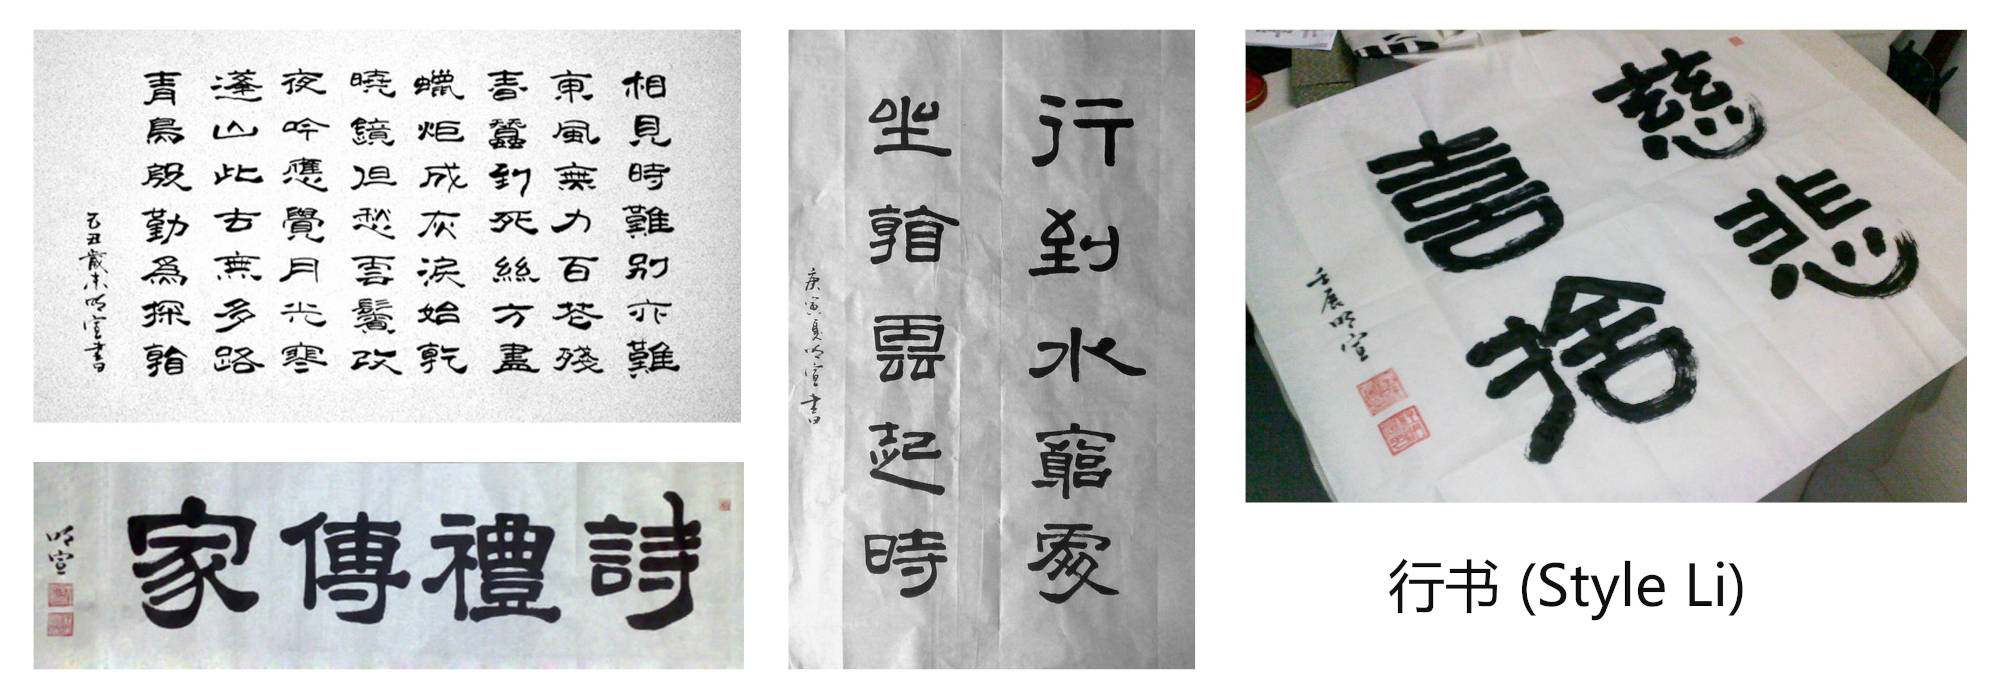 相見時難别亦難
東風無力百花殘
春蠶到死絲方盡
蠟炬成灰淚始乾
曉鏡但愁雲鬢改
夜吟應覺月光寒
蓬山此去無多路
青鳥殷勤為探看
己丑歲末明宣書
詩禮傳家
明宣
行到水窮處
坐看雲起時
庚寅夏明宣書
慈悲
喜捨
壬辰明宣
行书 (Style Li)